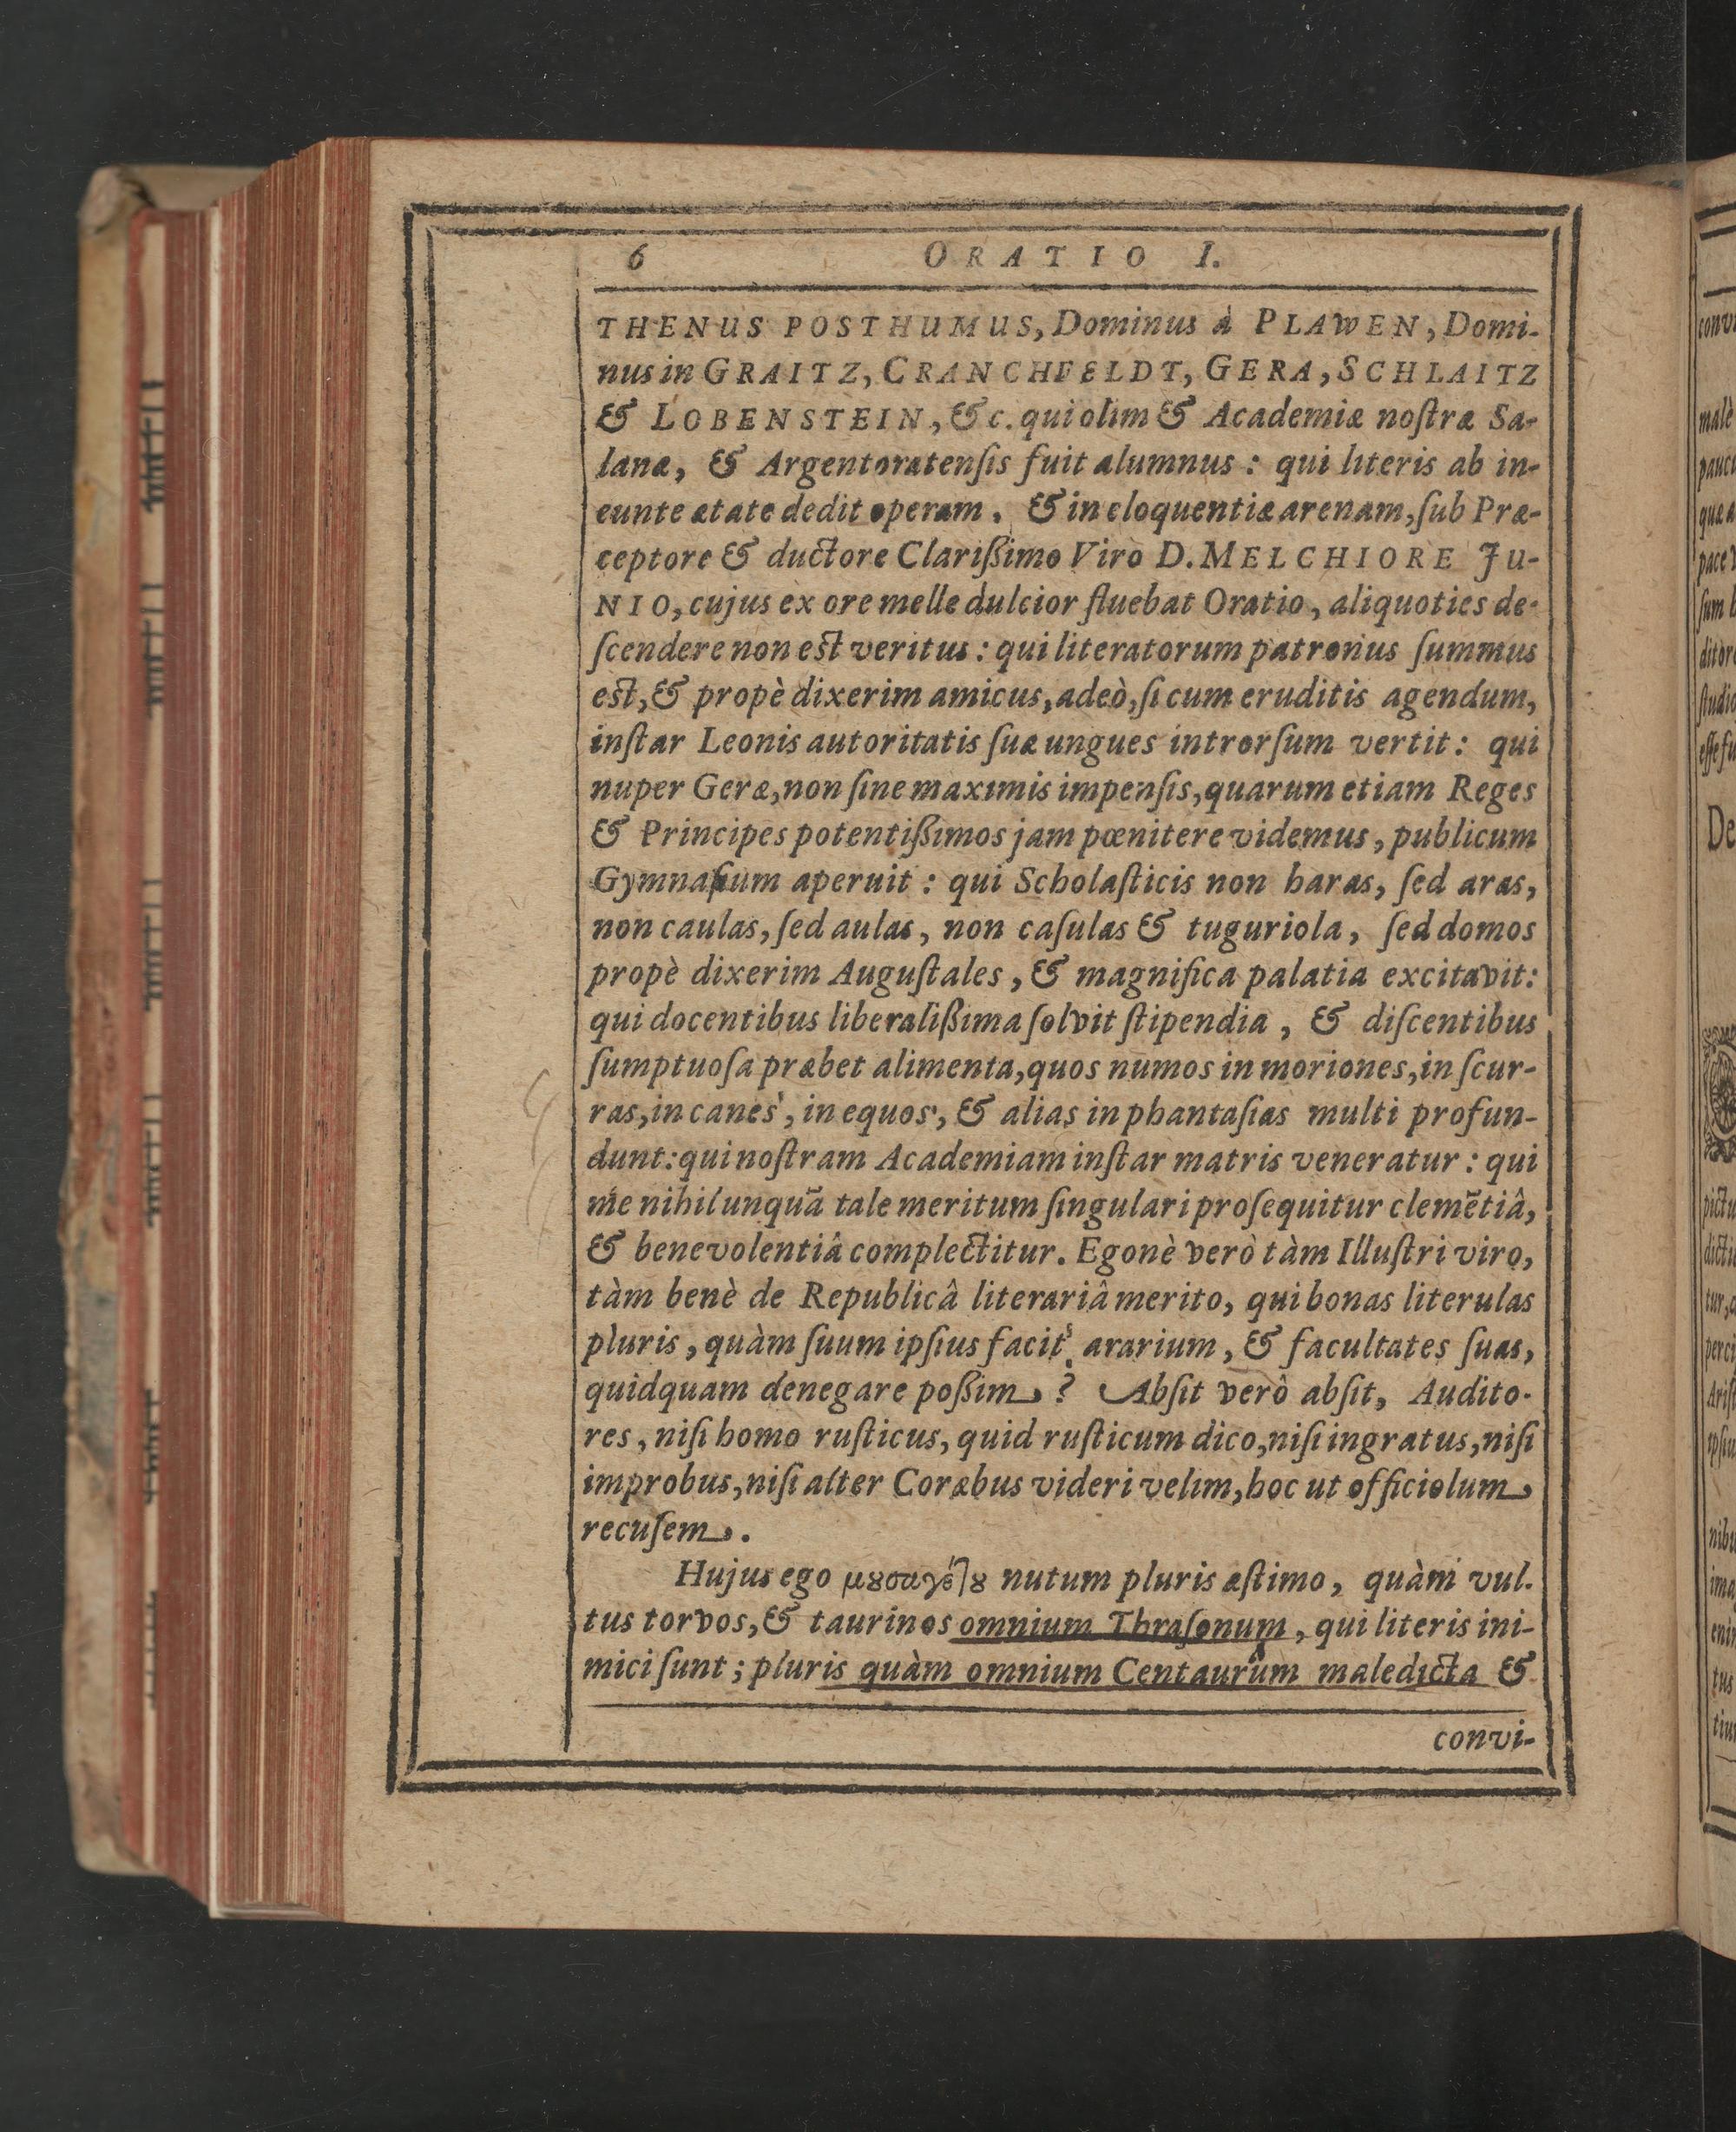 6 ORATIO I.
THENUS POSTHUMUS, Dominus à PLAWEN, Domi-
nus in GRAITZ, CRANCHFELDT, GERA, SCHLAITZ
& LOBENSTEIN, &c. qui olim & Academiæ noſtræ Sa-
lanæ, & Argentoratenſis fuit alumnus : qui literis ab in-
eunte ætate dedit operam. & in eloquentiæ arenam, ſub Præ-
ceptore & ductore Clarißimo Viro D. MELCHIORE JU-
NIO, cujus ex ore melle dulcior fluebat Oratio, aliquoties de-
ſcendere non est veritus : qui literatorum patronus ſummus
est, & propè dixerim amicus, adeò, ſi cum eruditis agendum,
inſtar Leonis autoritatis ſuæ ungues introrſum vertit : qui
nuper Geræ, non ſine maximis impenſis, quarum etiam Reges
& Principes potentißimos jam pœnitere videmus, publicum
Gymnaſium aperuit : qui Scholaſticis non haras, ſed aras,
non caulas, ſed aulas, non caſulas & tuguriola, ſed domos
propè dixerim Auguſtales, & magnifica palatia excitavit:
qui docentibus liberalißima ſolvit ſtipendia, & diſcentibus
ſumptuoſa præbet alimenta, quos numos in moriones, in ſcur-
ras, in canes, in equos, & alias in phantaſias multi profun-
dunt: qui noſtram Academiam inſtar matris veneratur : qui
me nihil unquã tale meritum ſingulari proſequitur clemẽtiâ,
& benevolentiâ complectitur. Egonè verò tàm Illuſtri viro,
tàm benè de Republicâ literariâ merito, qui bonas literulas
pluris, quàm ſuum ipſius facit ærarium, & facultates ſuas,
quidquam denegare poßim? Abſit verò abſit, Audito-
res, niſi homo ruſticus, quid ruſticum dico, niſi ingratus, niſi
improbus, niſi alter Coræbus videri velim, hoc ut officiolum
recuſem.
Hujus ego μȣσαγέτȣ nutum pluris æſtimo, quàm vul-
tus torvos, & taurinos omnium Thraſonum, qui literis ini-
mici ſunt; pluris quàm omnium Centaurûm maledicta &
convi-